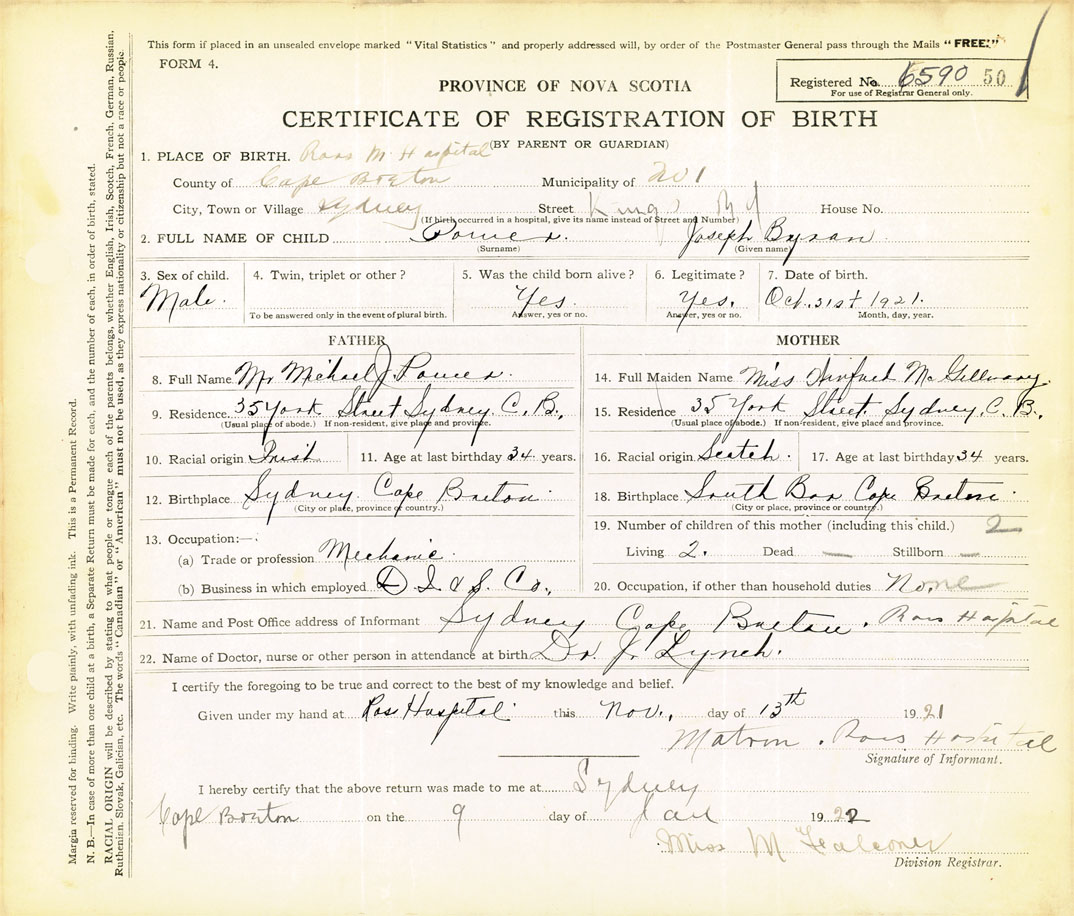 This form if placed in an unsealed envelope marked "Vital Statistics" and properly addressed will, by order of the Postmaster General pass through the Mails "FREE."
FORM 4.
Registered No. 6590 50
For use of Registrar General only.
PROVINCE OF NOVA SCOTIA
CERTIFICATE OF REGISTRATION OF BIRTH
(BY PARENT OR GUARDIAN)
1. PLACE OF BIRTH. Ross M Hospital
County of Cape Breton Municipality of No 1
City, Town or Village Sydney Street Kings Rd House No.
(If birth occurred in a hospital, give its name instead of Street and Number)
2. FULL NAME OF CHILD Power. Joseph Byran
(Surname) (Given name)
3. Sex of child. 4. Twin, triplet or other? 5. Was the child born alive? 6. Legitimate? 7. Date of birth.
Male. Yes. Yes. Oct. 31st 1921.
To be answered only in the event of plural birth. Answer, yes or no. Answer, yes or no. Month, day, year.
FATHER
8. Full Name Mr Michael J. Power.
9. Residence 35 York Street Sydney. C. B.,
(Usual place of abode.) If non-resident, give place and province.
10. Racial origin Irish 11. Age at last birthday 34 years.
12. Birthplace Sydney. Cape Breton.
(City or place, province or country.)
13. Occupation:—
(a) Trade or profession Mechanic.
(b) Business in which employed D I & S. Co.,
MOTHER
14. Full Maiden Name Miss McGillvary.
15. Residence 35 York Street. Sydney. C. B.,
(Usual place of abode.) If non-resident, give place and province.
16. Racial origin Scotch. 17. Age at last birthday 34 years.
18. Birthplace South Bar Cape Breton.
(City or place, province or country.)
19. Number of children of this mother (including this child.) 2
Living 2. Dead — Stillborn —
20. Occupation, if other than household duties None
21. Name and Post Office address of Informant Sydney Cape Breton. Ross Hospital
22. Name of Doctor, nurse or other person in attendance at birth Dr. J. Lynch.
I certify the foregoing to be true and correct to the best of my knowledge and belief.
Given under my hand at Ross Hospital this Nov., day of 13th 1921
Matron. Ross Hospital
Signature of Informant.
I hereby certify that the above return was made to me at Sydney
Cape Breton on the 9 day of Jan 1922
Miss M Fealconer
Division Registrar.
Margin reserved for binding. Write plainly, with unfading ink. This is a Permanent Record.
N. B.—In case of more than one child at a birth, a Separate Return must be made for each, and the number of each, in order of birth, stated.
RACIAL ORIGIN will be described by stating to what people or tongue each of the parents belongs, whether English, Irish, Scotch, French, German, Russian,
Ruthenian, Slovak, Galician, etc. The words "Canadian" or "American" must not be used, as they express nationality or citizenship but not a race or people.